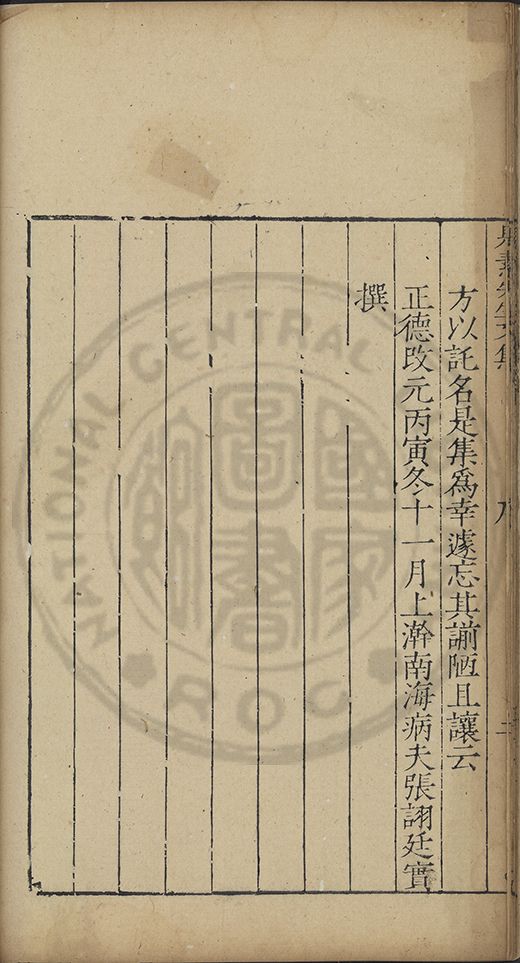 方以託名是集爲幸遽忘其謭陋且讓云
正德改元丙寅冬十一月上澣南海病夫張詡廷實
撰
NATIONAL CENTRAL
圖書
國家
ROC